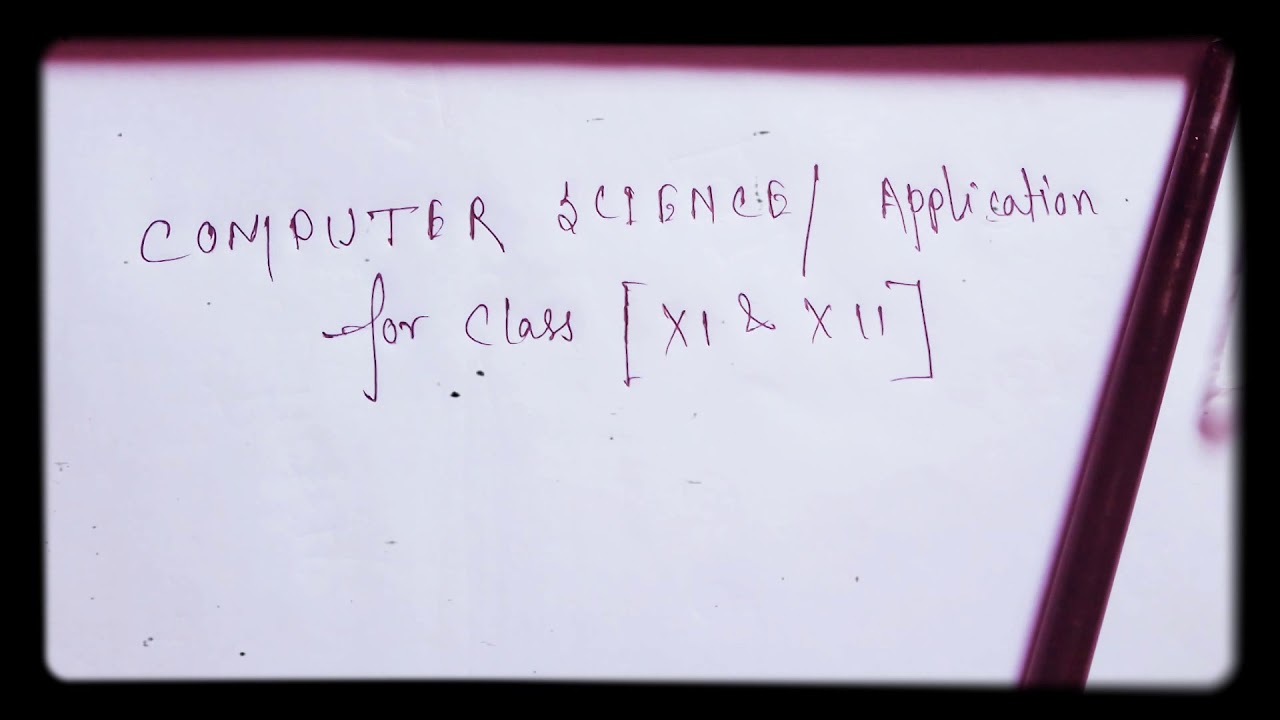 COMPUTER SCIENCE/ Application
for Class [XI & XII]